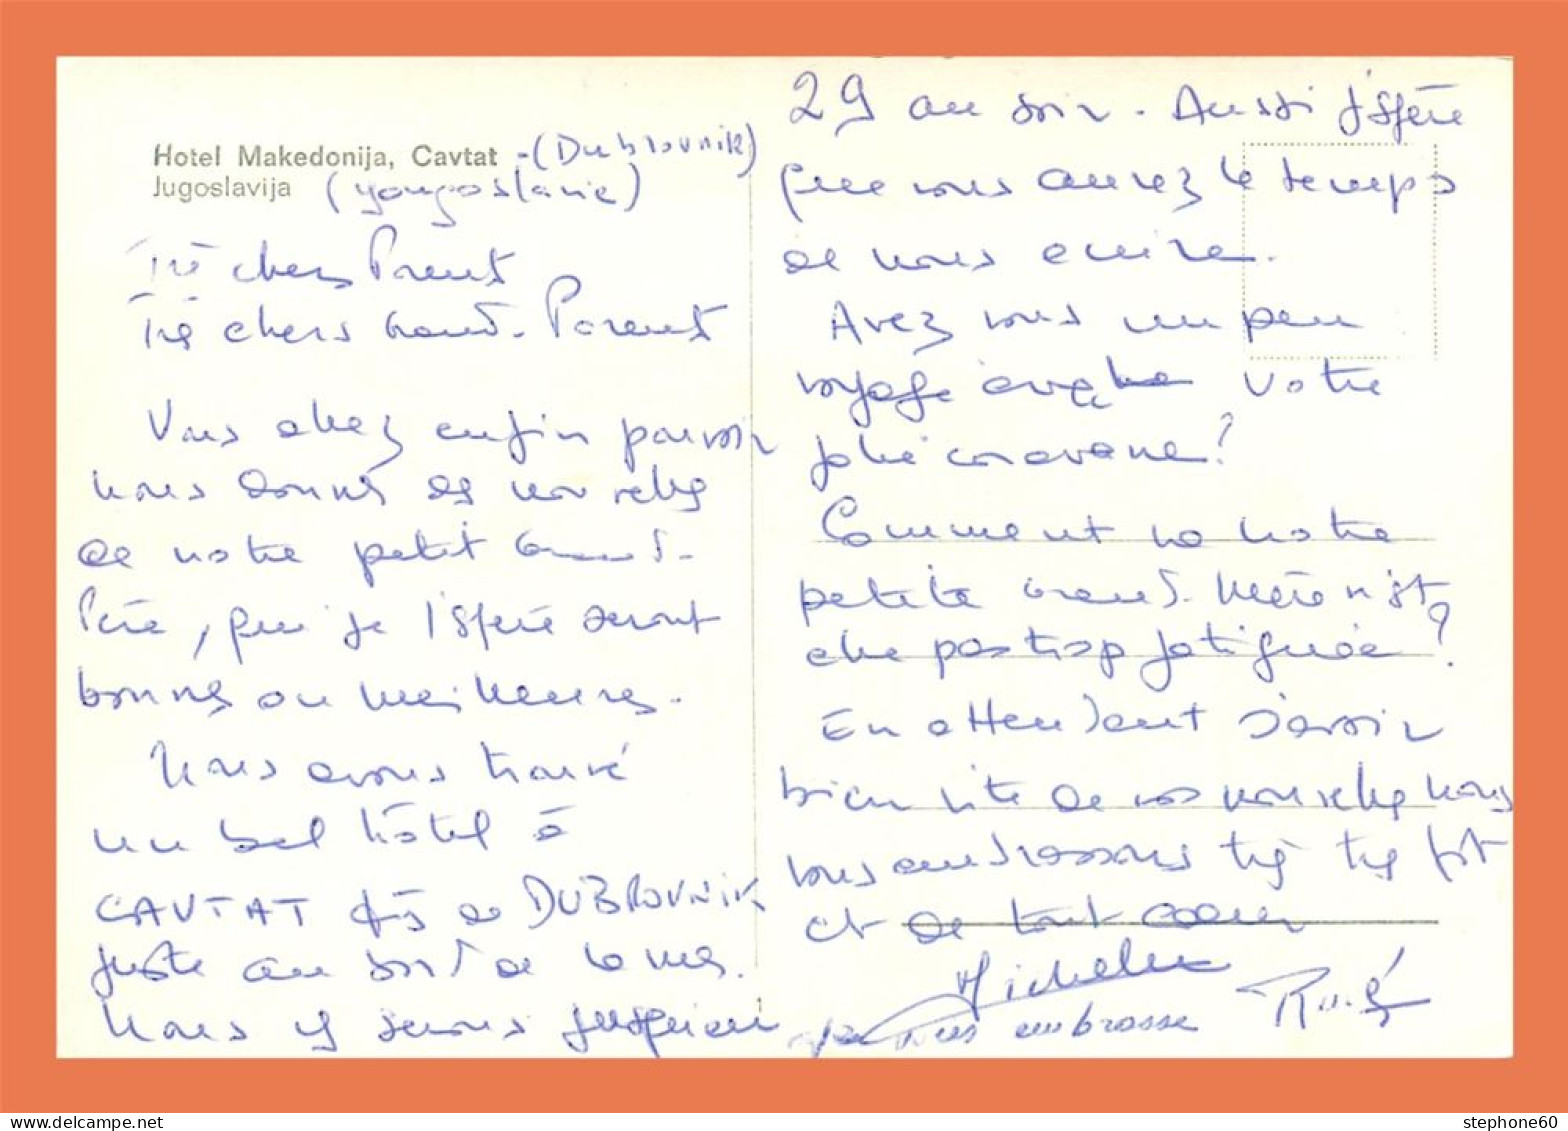 Hotel Makedonija, Cavtat -(Dubrovnik)
Jugoslavija (Yougoslavie)
Très chers Parents
Très chers Grand-Parents
Vous allez enfin pouvoir
nous donner des nouvelles
de notre petit Grand-
Père, que je l'espère seront
bonnes ou meilleures.
Nous avons trouvé
un bel hôtel à
CAVTAT près de DUBROVNIK
juste au bord de la mer.
Nous y serons jusqu'au
29 au soir. Aussi j'espère
que vous aurez le temps
de nous écrire.
Avez vous un peu
voyagé avec votre
jolie caravane?
Comment va notre
petite Grand-Mère n'est
elle pas trop fatiguée?
En attendant d'avoir
bien vite de vos nouvelles nous
vous embrassons très très fort
et de tout coeur
Michelle
vous embrasse René
1
stephone60